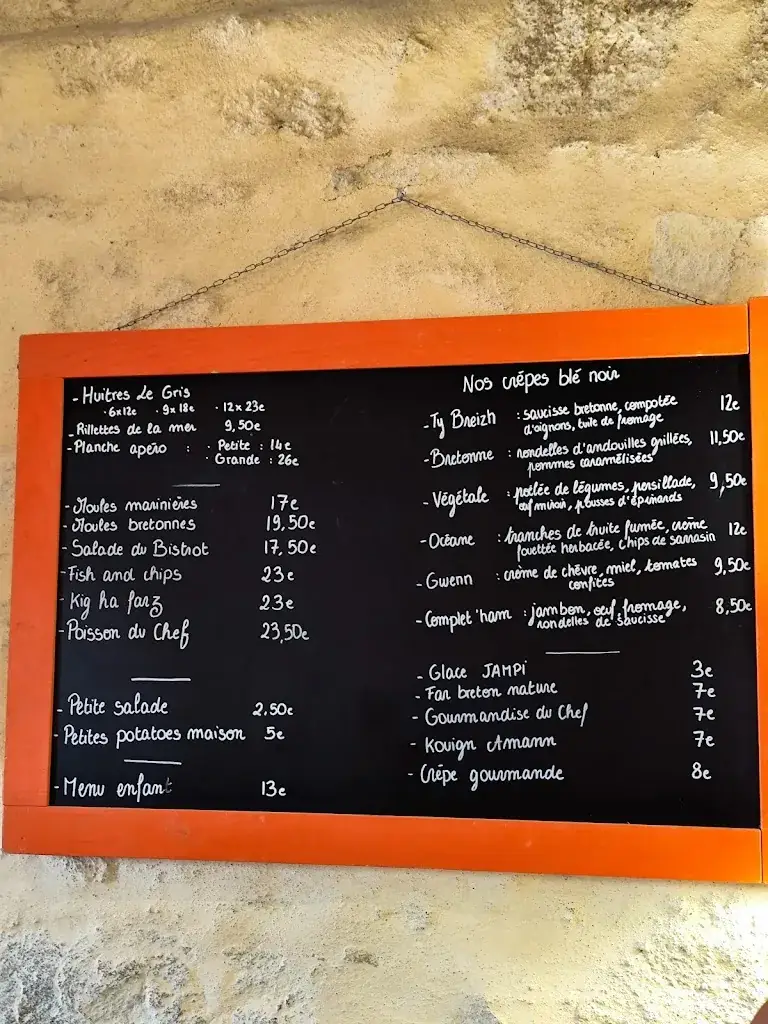 - Huitres Le Gris
· 6x12€ · 9x18€ · 12x23€
- Rillettes de la mer 9,50€
- Planche apéro : · Petite : 14€
· Grande : 26€
- Moules marinières 17€
- Moules bretonnes 19,50€
- Salade du Bistrot 17,50€
- Fish and chips 23€
- Kig ha farz 23€
- Poisson du Chef 23,50€
- Petite salade 2,50€
- Petites potatoes maison 5€
- Menu enfant 13€
Nos crêpes blé noir
- Ty Breizh : saucisse bretonne, compotée 12€
d'oignons, tuile de fromage
- Bretonne : rondelles d'andouilles grillées, 11,50€
pommes caramélisées
- Végétale : poêlée de légumes, persillade, 9,50€
œuf miroir, pousses d'épinards
- Océane : tranches de truite fumée, crème 12€
fouettée herbacée, chips de sarrasin
- Gwenn : crème de chèvre, miel, tomates 9,50€
confites
- Complet'ham : jambon, œuf, fromage, 8,50€
rondelles de saucisse
- Glace JAMPi 3€
- Far breton nature 7€
- Gourmandise du Chef 7€
- Kouign Amann 7€
- Crêpe gourmande 8€